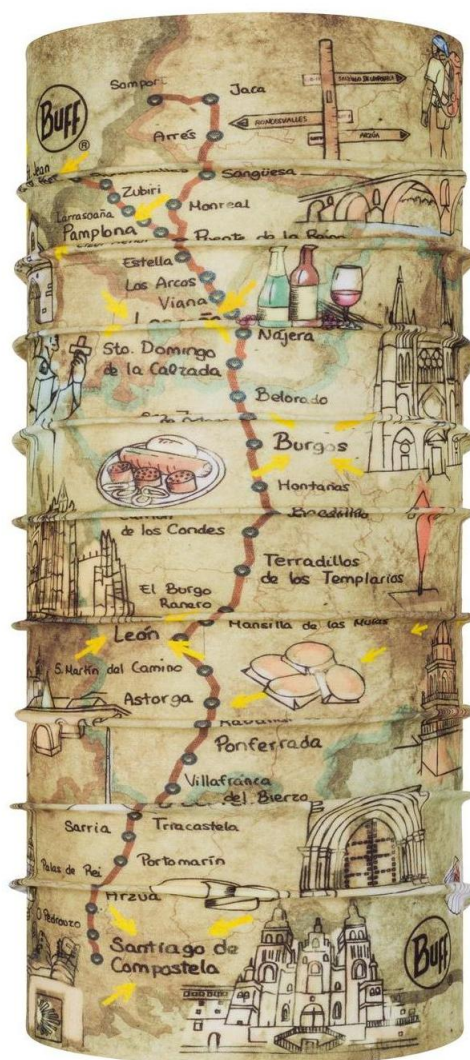 BUFF
®
Somport
Jaca
Arrés
RONCESVALLES
ARZÚA
Sangüesa
Zubiri
Larrasoaña
Monreal
Pamplona
Puente de la Reina
Estella
Los Arcos
Viana
Nájera
Sto. Domingo
de la Calzada
Belorado
Burgos
Hontanas
de los Condes
Terradillos
de los Templarios
El Burgo
Ranero
Mansilla de las Mulas
León
S. Martín del Camino
Astorga
Ponferrada
Villafranca
del Bierzo
Sarria
Triacastela
Palas de Rei
Portomarín
Arzúa
O Pedrouzo
Santiago de
Compostela
BUFF